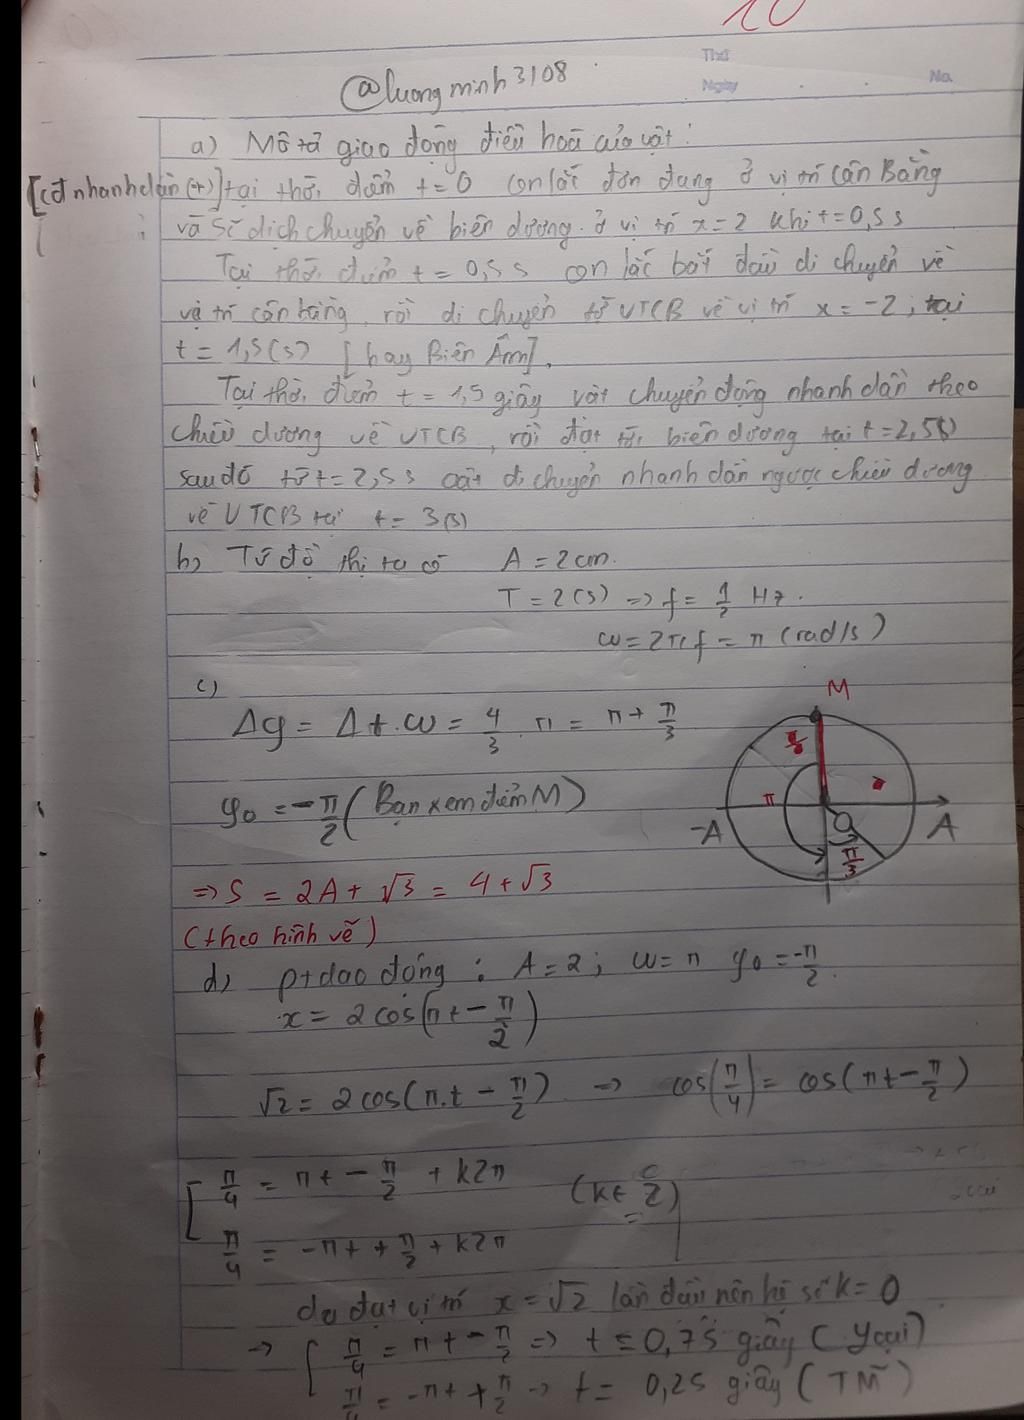 10
Thứ
Ngày
No.
@luongminh3108
a) Mô tả giao động điều hoà của vật:
[cđ nhanh dần (+)] tại thời điểm t = 0 con lắc đơn đang ở vị trí cân Bằng
và sẽ dịch chuyển về biên dương. ở vị trí x = 2 khi t = 0,5 s
Tại thời điểm t = 0,5 s con lắc bắt đầu di chuyển về
vị trí cân bằng, rồi di chuyển từ VTCB về vị trí x = -2; tại
t = 1,5(s) [hay Biên Âm].
Tại thời điểm t = 1,5 giây vật chuyển động nhanh dần theo
chiều dương về VTCB, rồi đạt tới biên dương tại t = 2,5(s)
sau đó từ t = 2,5 s vật di chuyển nhanh dần ngược chiều dương
về VTCB tại t = 3(s)
b) Từ đồ thị ta có A = 2 cm.
T = 2(s) => f = 1/2 Hz.
ω = 2πf = π (rad/s)
c)
Δφ = Δt.ω = 4/3 . π = π + π/3
φ0 = -π/2 (Bạn xem điểm M)
M
π
-A
O
A
π/3
=> S = 2A + √3 = 4 + √3
(theo hình vẽ)
d) pt dao động: A = 2; ω = π φ0 = -π/2.
x = 2 cos(πt - π/2)
√2 = 2 cos(π.t - π/2) => cos(π/4) = cos(πt - π/2)
[ π/4 = πt - π/2 + k2π (k ∈ Z)
π/4 = -πt + π/2 + k2π
do đạt vị trí x = √2 lần đầu nên hệ số k = 0
=> [ π/4 = πt - π/2 => t = 0,75 giây (loại)
π/4 = -πt + π/2 -> t = 0,25 giây (TM)